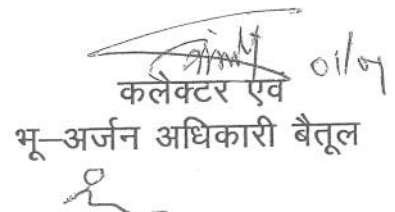 कलेक्टर एवं
भू–अर्जन अधिकारी बैतूल